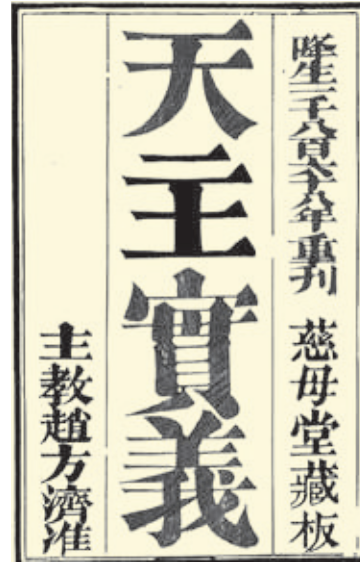 降生一千八百六十八年重刊 慈母堂藏板
天主實義
主教趙方濟准